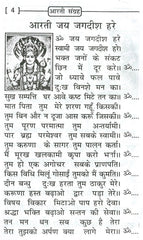 [ 4 ] आरती संग्रह
आरती जय जगदीश हरे
ॐ जय जगदीश हरे
स्वामी जय जगदीश हरे।
भक्त जनों के संकट
छिन में दूर करे।
जो ध्यावे फल पावे
दुःख विनशे मन का।
सुख सम्पत्ति घर आवे कष्ट मिटे तन का। ॐ...
मात पिता तुम मेरे शरण गहूँ किसकी।
तुम बिन और न दूजा आस करूँ जिसकी। ॐ...
तुम पूरण परमात्मा तुम अन्तर्यामी।
पार ब्रह्म परमेश्वर तुम सबके स्वामी। ॐ...
तुम करुणा के सागर तुम पालन कर्ता।
मैं मूरख खलकामी कृपा करो भर्ता। ॐ...
तुम हो एक अगोचर सबके प्राणपति।
किस विधि मिलूँ गोसाईं तुमको मैं कुमति। ॐ...
दीन बन्धु दुःख हरता तुम ठाकुर मेरे।
करुणा हस्त बढ़ाओ द्वार पड़ा तेरे। ॐ...
विषय विकार मिटाओ पाप हरो देवा।
श्रद्धा भक्ति बढ़ाओ सन्तन की सेवा। ॐ...
तन मन धन सब कुछ है तेरा
तेरा तुझको अर्पण क्या लागे मेरा। ॐ...